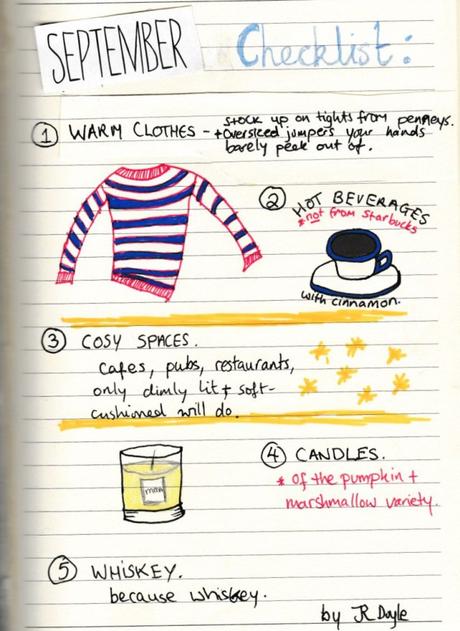 SEPTEMBER Checklist:
① WARM CLOTHES - stock up on tights from penneys.
+ oversized jumpers your hands
barely peek out of.
② HOT BEVERAGES
* not from starbucks
with cinnamon.
③ COSY SPACES.
cafes, pubs, restaurants,
only dimly lit + soft-
cushioned will do.
④ CANDLES.
* of the pumpkin +
marshmallow variety.
⑤ WHISKEY.
because whiskey.
by JR Doyle